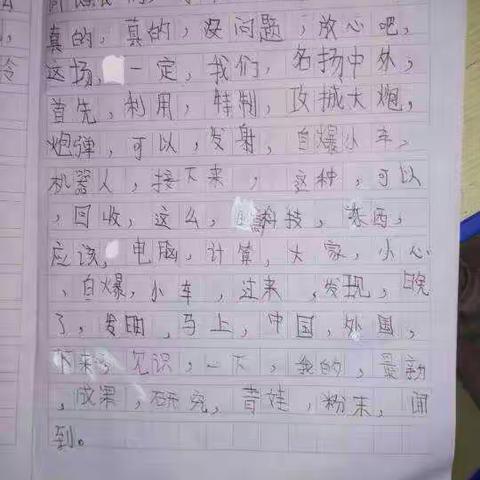 真的，真的，没问题，放心吧，
这场，一定，我们，名扬中外，
首先，利用，特制，攻城大炮，
炮弹，可以，发射，自爆小车，
机器人，接下来，这种，可以
，回收，这么，科技，东西，
应该，电脑，计算，大家，小心
，自爆，小车，过来，发现，晚
了，发明，马上，中国，外国，
下来，见识，一下，我的，最新
，成果，研究，青蛙，粉末，闻
到。